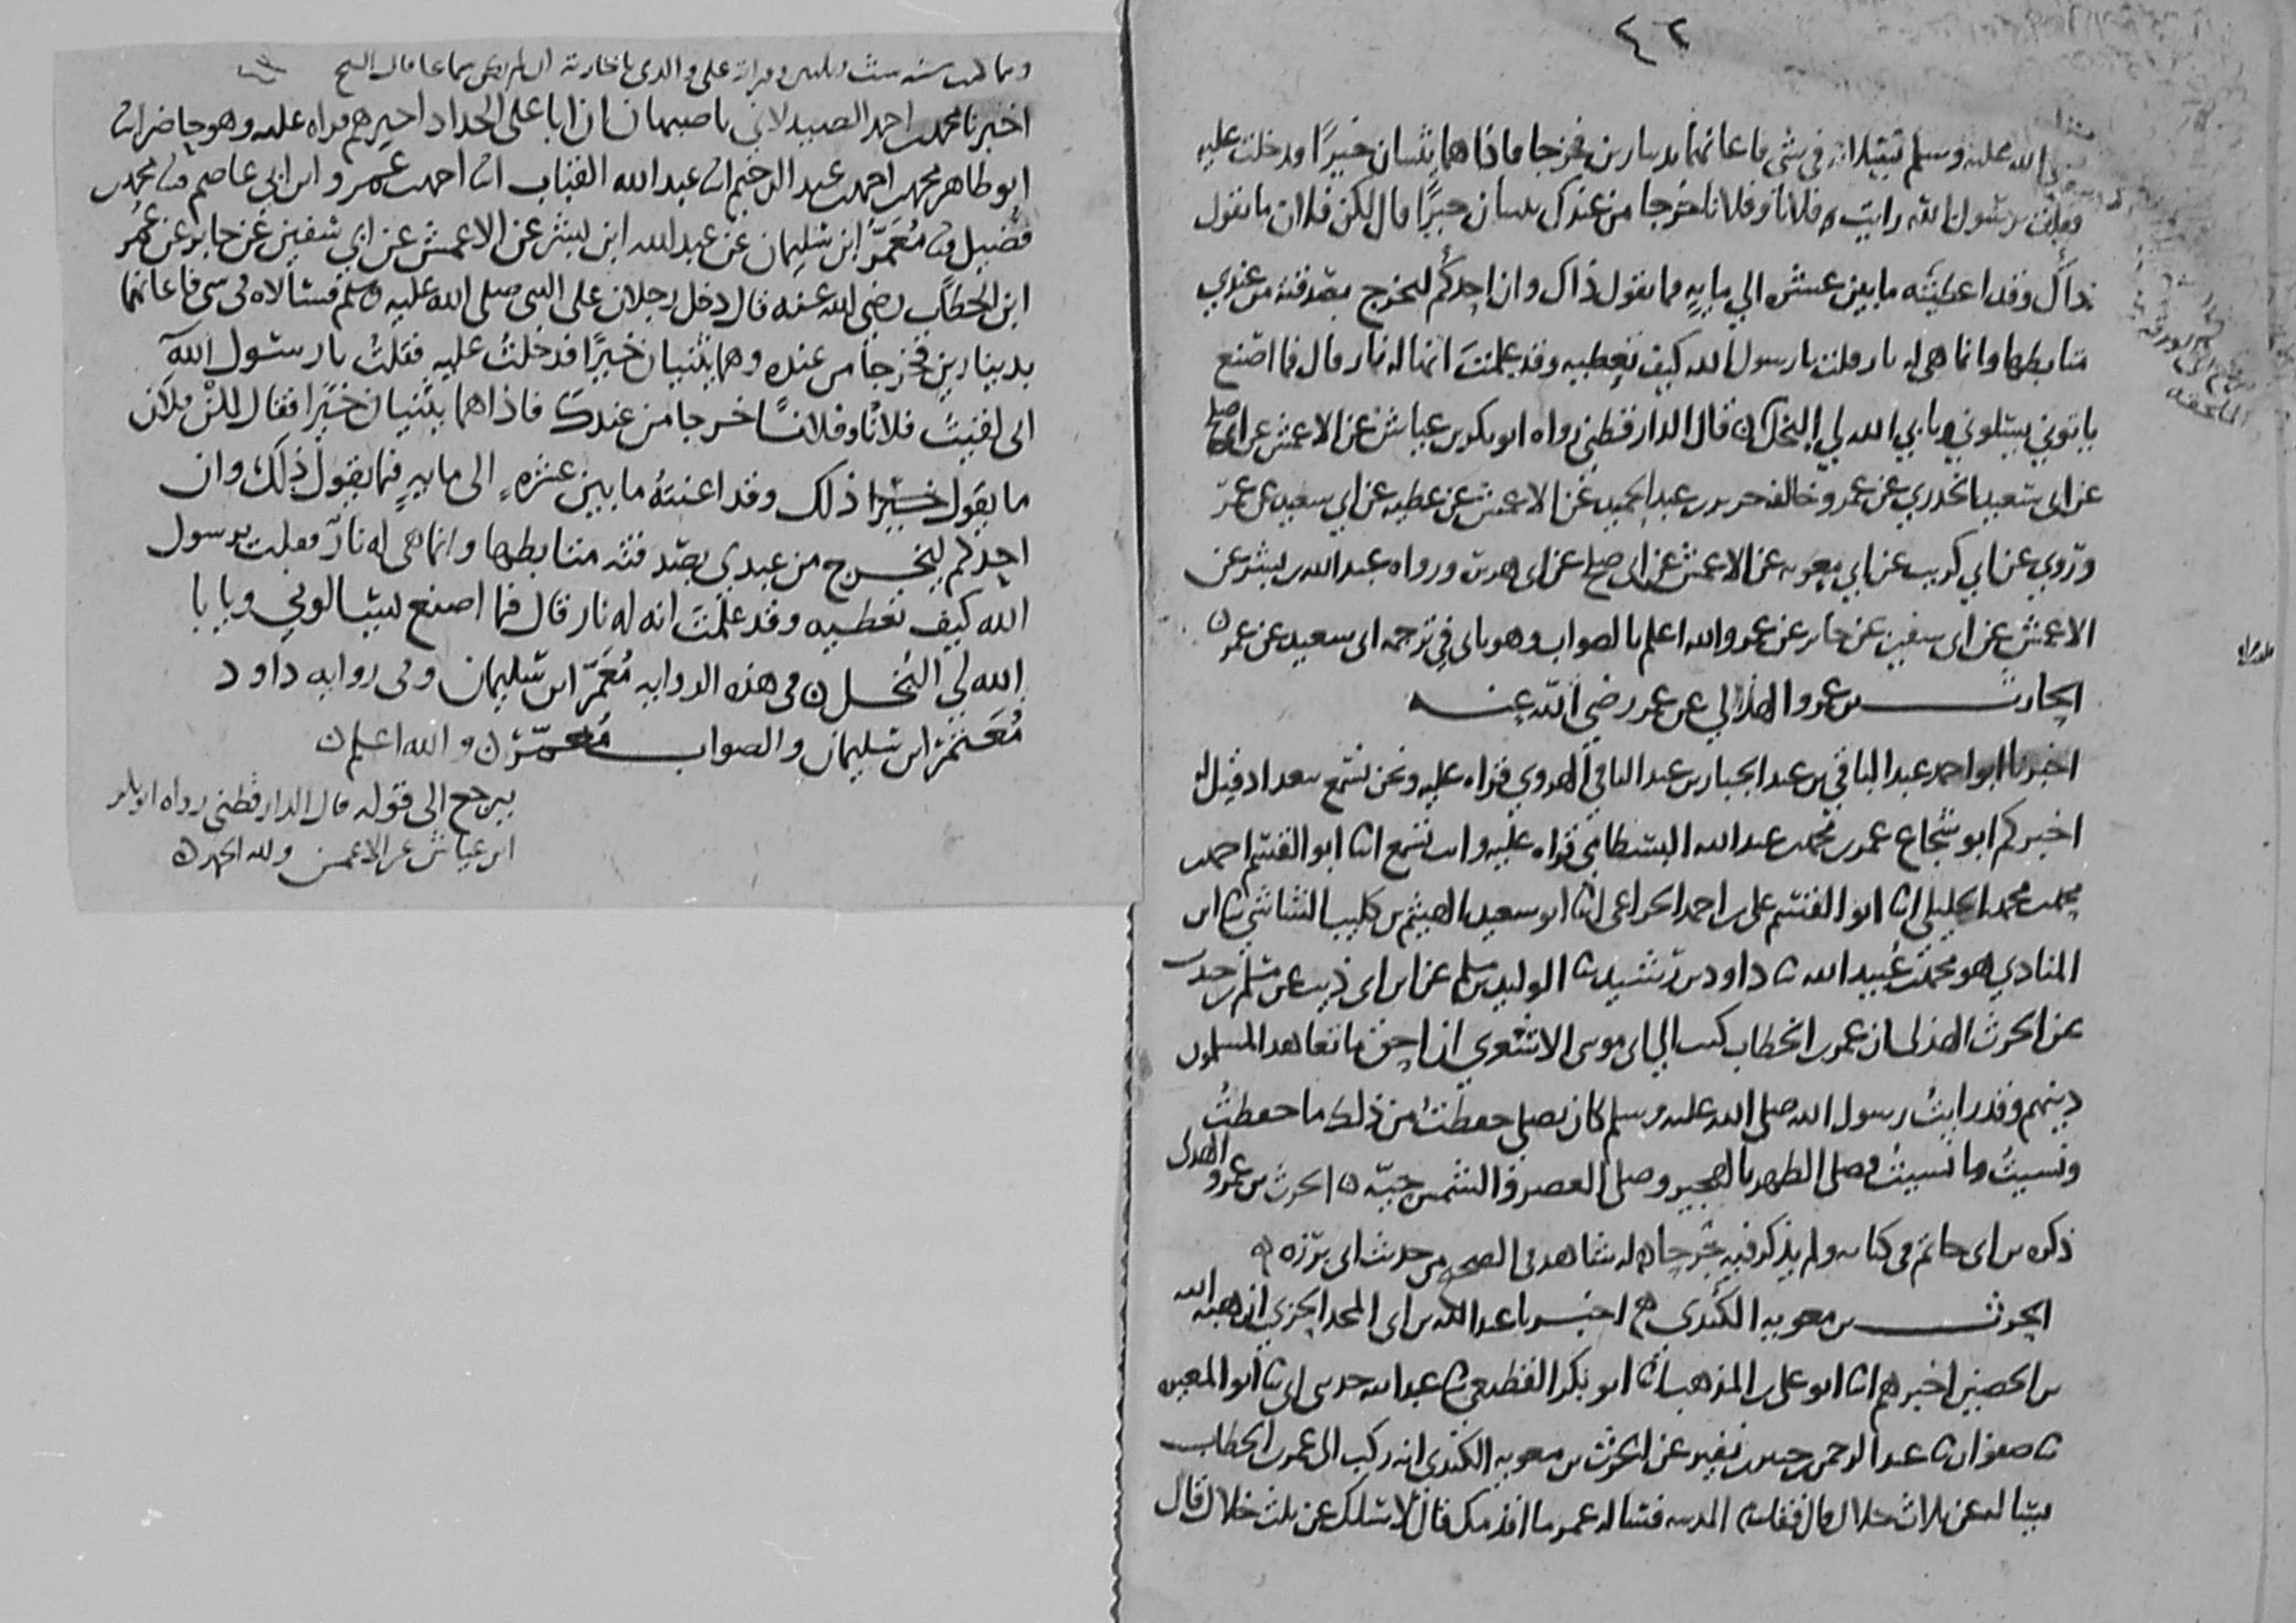 ٤٢
الله عليه وسلم يسلانه في شي فاعانهما بدينارين فخرجا فاذا هما يثنيان خيرا فدخلت عليه
فقلت يرسول الله رايت فلانا وفلانا خرجا من عندك يثنيان خيرا قال لكن فلان ما يقول
ذاك وقد اعطيته ما بين عشرة الي مايه فما يقول ذاك وان احدكم ليخرج بصدقته من عندي
متابطها وانما هي له نار قلت يا رسول الله كيف تعطيه وقد علمت انها له نار قال فما اصنع
ياتوني يسلوني ويابي الله لي البخل ن قال الدارقطني رواه ابو بكر بن عياش عن الاعمش عن ابي صلح
عن ابي سعيد الخدري عن عمر وخالفه جرير بن عبد الحميد عن الاعمش عن عطيه عن ابي سعيد عن عمر
وروي عن ابي كريب عن ابي معويه عن الاعمش عن ابي صلح عن ابي هريرة ورواه عبد الله بن بشر عن
الاعمش عن ابي سفين عن جابر عن عمر والله اعلم بالصواب وهو ياتي في ترجمه ابي سعيد عن عمر ن
الحارث بن عمرو الهذلي عن عمر رضي الله عنه
اخبرنا ابو احمد عبد الباقي بن عبد الجبار بن عبد الباقي الهروي قراه عليه ونحن نسمع ببغداد قيل له
اخبركم ابو شجاع عمر بن محمد بن عبد الله البسطامي قراه عليه وانت تسمع انا ابو القسم احمد بن
محمد بن محمد الخليلي انا ابو القسم علي بن احمد الخزاعي انا ابو سعيد الهيثم بن كليب الشاشي نا ابن
المنادي هو محمد بن عبيد الله نا داود بن رشيد نا الوليد بن مسلم عن ابن ابي ذيب عن مسلم بن جندب
عن الحرث الهذلي ان عمر بن الخطاب كتب الي ابي موسى الاشعري ان احق ما تعاهد المسلمون
دينهم وقد رايت رسول الله صلى الله عليه وسلم كان يصلي حفظت من ذلك ما حفظت
ونسيت ما نسيت فصلى الظهر بالهجير وصلى العصر والشمس حيه ن الحرث بن عمرو الهذلي
ذكره بن ابي حاتم في كتابه ولم يذكر فيه جرحا له شاهد في الصحيح من حديث ابي برزه ن
الحرث بن معويه الكندي اخبرنا عبد الله بن ابي المجد الحربي ان هبه الله
بن الحصين اخبرهم انا ابو علي بن المذهب انا ابو بكر القطيعي نا عبد الله حدثني ابي نا ابو المغيره
نا صفوان نا عبد الرحمن بن جبير بن نفير عن الحرث بن معويه الكندي انه ركب الى عمر بن الخطاب
يساله عن ثلاث خلال قال فقدم المدينه فساله عمر ما اقدمك قال لاسلك عن ثلث خلال قال
اخبرنا محمد بن احمد الصيدلاني باصبهان ان ابا علي الحداد اخبرهم قراه عليه وهو حاضر انا
ابو طاهر محمد بن احمد بن عبد الرحيم انا عبد الله القباب انا احمد بن عمرو ابن ابي عاصم نا محمد بن
فضيل نا معمر ابن سليمان عن عبد الله ابن بشر عن الاعمش عن ابي سفين عن جابر عن عمر
ابن الخطاب رضي الله عنه قال دخل رجلان على النبي صلى الله عليه وسلم فسالاه في شي فاعانهما
بدينارين فخرجا من عنده وهما يثنيان خيرا فدخلت عليه فقلت يا رسول الله
اني لقيت فلانا وفلانا خرجا من عندك فاذا هما يثنيان خيرا فقال لكن فلان
ما يقول خيرا ذلك وقد اعنته ما بين عشره الى مايه فما يقول ذلك وان
احدكم ليخرج من عندي بصدقته متابطها وانما هي له نار فقلت يرسول
الله كيف تعطيه وقد علمت انه له نار قال فما اصنع يسالوني ويابا
الله لي البخل ن في هذه الروايه معمر ابن سليمان وفي روايه داود
معتمر ابن سليمان والصواب معمر ن والله اعلم ن
يرجع الى قوله قال الدارقطني رواه ابو بكر
ابن عياش عن الاعمش ولله الحمد ن